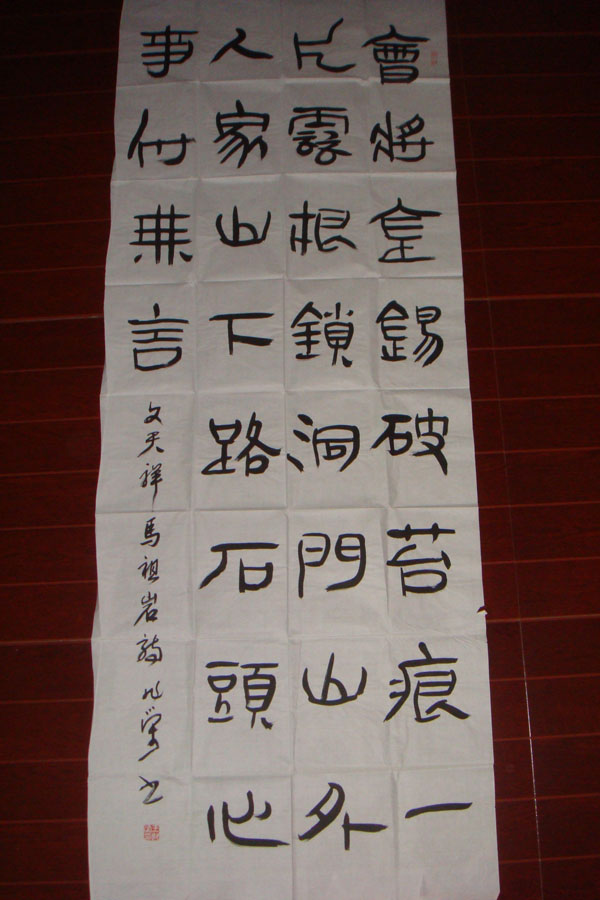 會將錫破苔痕一
片雲根鎖洞門山外
人家山下路石頭心
事付無言
文天祥馬祖岩詩 书